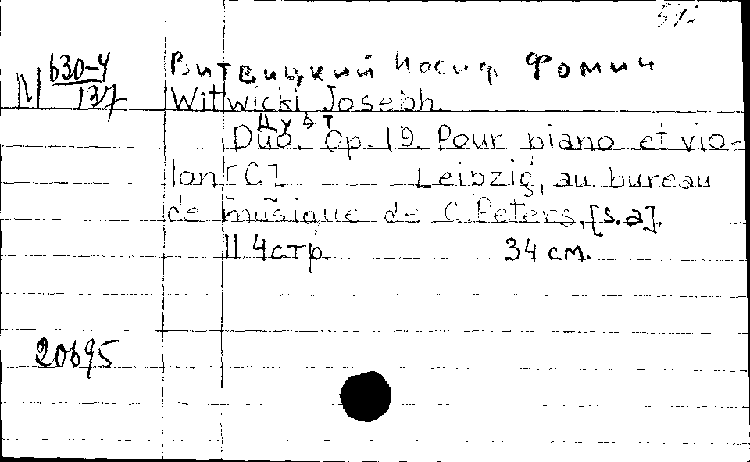 51.
М 630-4
137
Витвицкий Иосиф Фомич
Witwicki Joseph.
Дуэт
Duo. Op. 19. Pour piano et vio-
lon [C] Leipzig, au bureau
de musique de C. Peters, [s.a].
11 4 стр. 34 см.
20695